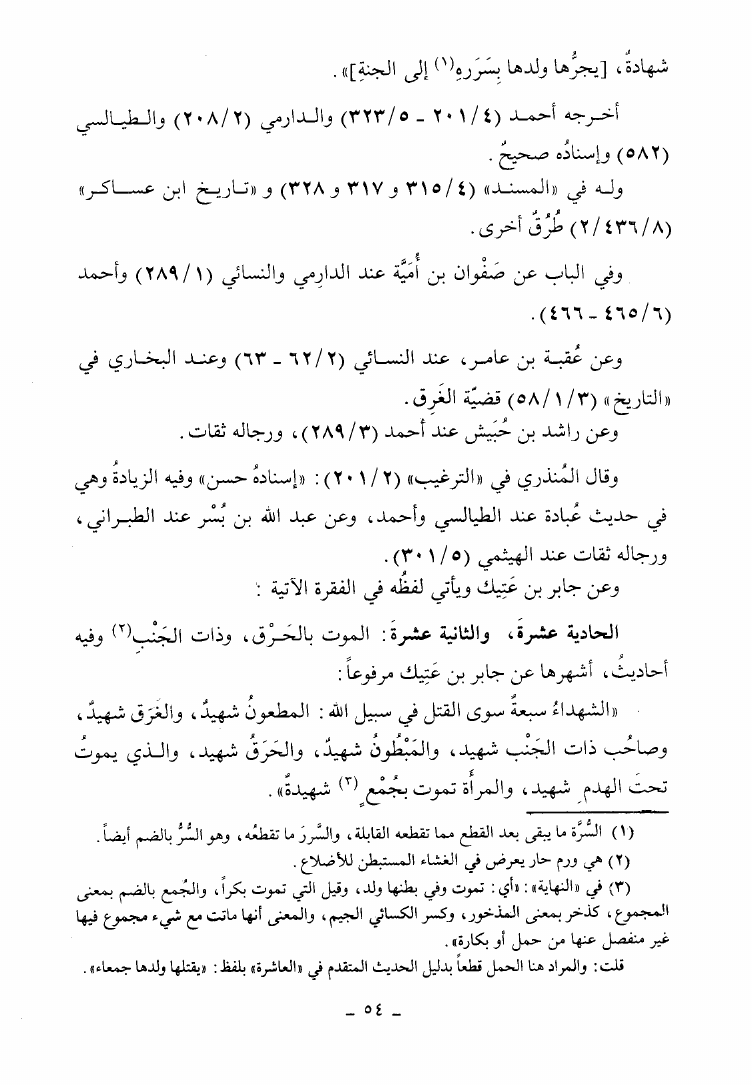 شهادةٌ، [يجرُّها ولدها بِسَرَرِهِ(١) إلى الجنةِ]».
أخرجه أحمد (٢٠١/٤ - ٣٢٣/٥) والدارمي (٢٠٨/٢) والطيالسي
(٥٨٢) وإسنادُه صحيحٌ.
وله في «المسند» (٣١٥/٤ و ٣١٧ و ٣٢٨) و «تاريخ ابن عساكر»
(٢/٤٣٦/٨) طُرُقٌ أخرى.
وفي الباب عن صَفْوان بن أُمَيَّة عند الدارِمي والنسائي (٢٨٩/١) وأحمد
(٤٦٥/٦ - ٤٦٦).
وعن عُقبة بن عامر، عند النسائي (٦٢/٢ - ٦٣) وعند البخاري في
«التاريخ» (٥٨/١/٣) قضيّة الغَرِق.
وعن راشد بن حُبَيش عند أحمد (٢٨٩/٣)، ورجاله ثقات.
وقال المُنذري في «الترغيب» (٢٠١/٢): «إسنادهُ حسن» وفيه الزيادةُ وهي
في حديث عُبادة عند الطيالسي وأحمد، وعن عبد الله بن بُسْر عند الطبراني،
ورجاله ثقات عند الهيثمي (٣٠١/٥).
وعن جابر بن عَتِيك ويأتي لفظُه في الفقرة الآتية :
الحادية عشرة، والثانية عشرة: الموت بالحَرْق، وذات الجَنْبِ(٢) وفيه
أحاديثُ، أشهرها عن جابر بن عَتِيك مرفوعاً:
«الشهداءُ سبعةٌ سوى القتل في سبيل الله: المطعونُ شهيدٌ، والغَرَق شهيدٌ،
وصاحُب ذات الجَنْب شهيد، والمَبْطُونُ شهيدٌ، والحَرَقُ شهيد، والذي يموتُ
تحتَ الهدمِ شهيد، والمرأة تموت بجُمْعٍ(٣) شهيدةٌ».
(١) السُّرَّة ما يبقى بعد القطع مما تقطعه القابلة، والسَّررَ ما تقطعُه، وهو السُّرُّ بالضم أيضاً.
(٢) هي ورم حار يعرض في الغشاء المستبطن للأضلاع.
(٣) في «النهاية»: «أي: تموت وفي بطنها ولد، وقيل التي تموت بكراً، والجُمع بالضم بمعنى
المجموع، كذخر بمعنى المذخور، وكسر الكسائي الجيم، والمعنى أنها ماتت مع شيء مجموع فيها
غير منفصل عنها من حمل أو بكارة».
قلت: والمراد هنا الحمل قطعاً بدليل الحديث المتقدم في «العاشرة» بلفظ: «يقتلها ولدها جمعاء».
- ٥٤ -